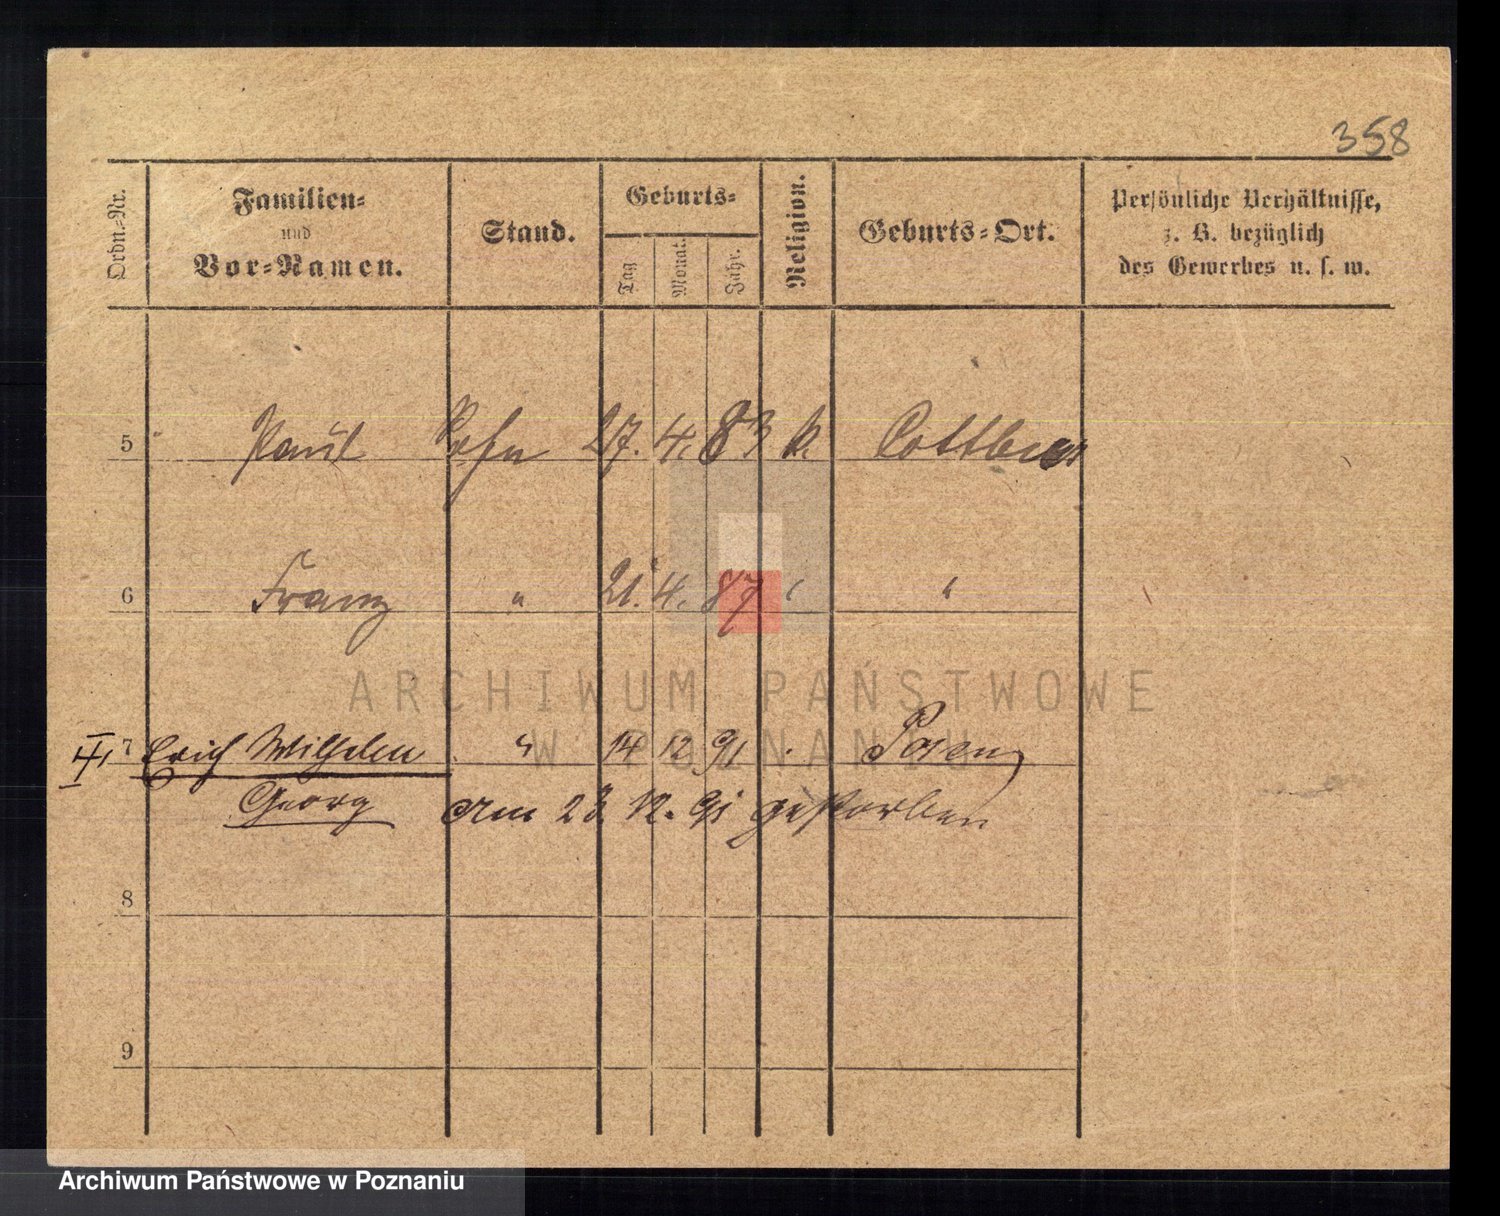 358
Ordn.-Nr. Familien- und Vor-Namen. Stand. Geburts- Tag Monat. Jahr. Religion. Geburts-Ort. Persönliche Verhältnisse, z. B. bezüglich des Gewerbes u. s. w.
5 Paul Sohn 27. 4. 83 k. Cottbus
6 Franz " 21. 4. 87 " "
ARCHIWUM PAŃSTWOWE
W POZNANIU
7 Erich Wilhelm " 14 12 91 " Posen
Georg am 23. 12. 91 gestorben
8
9
Archiwum Państwowe w Poznaniu